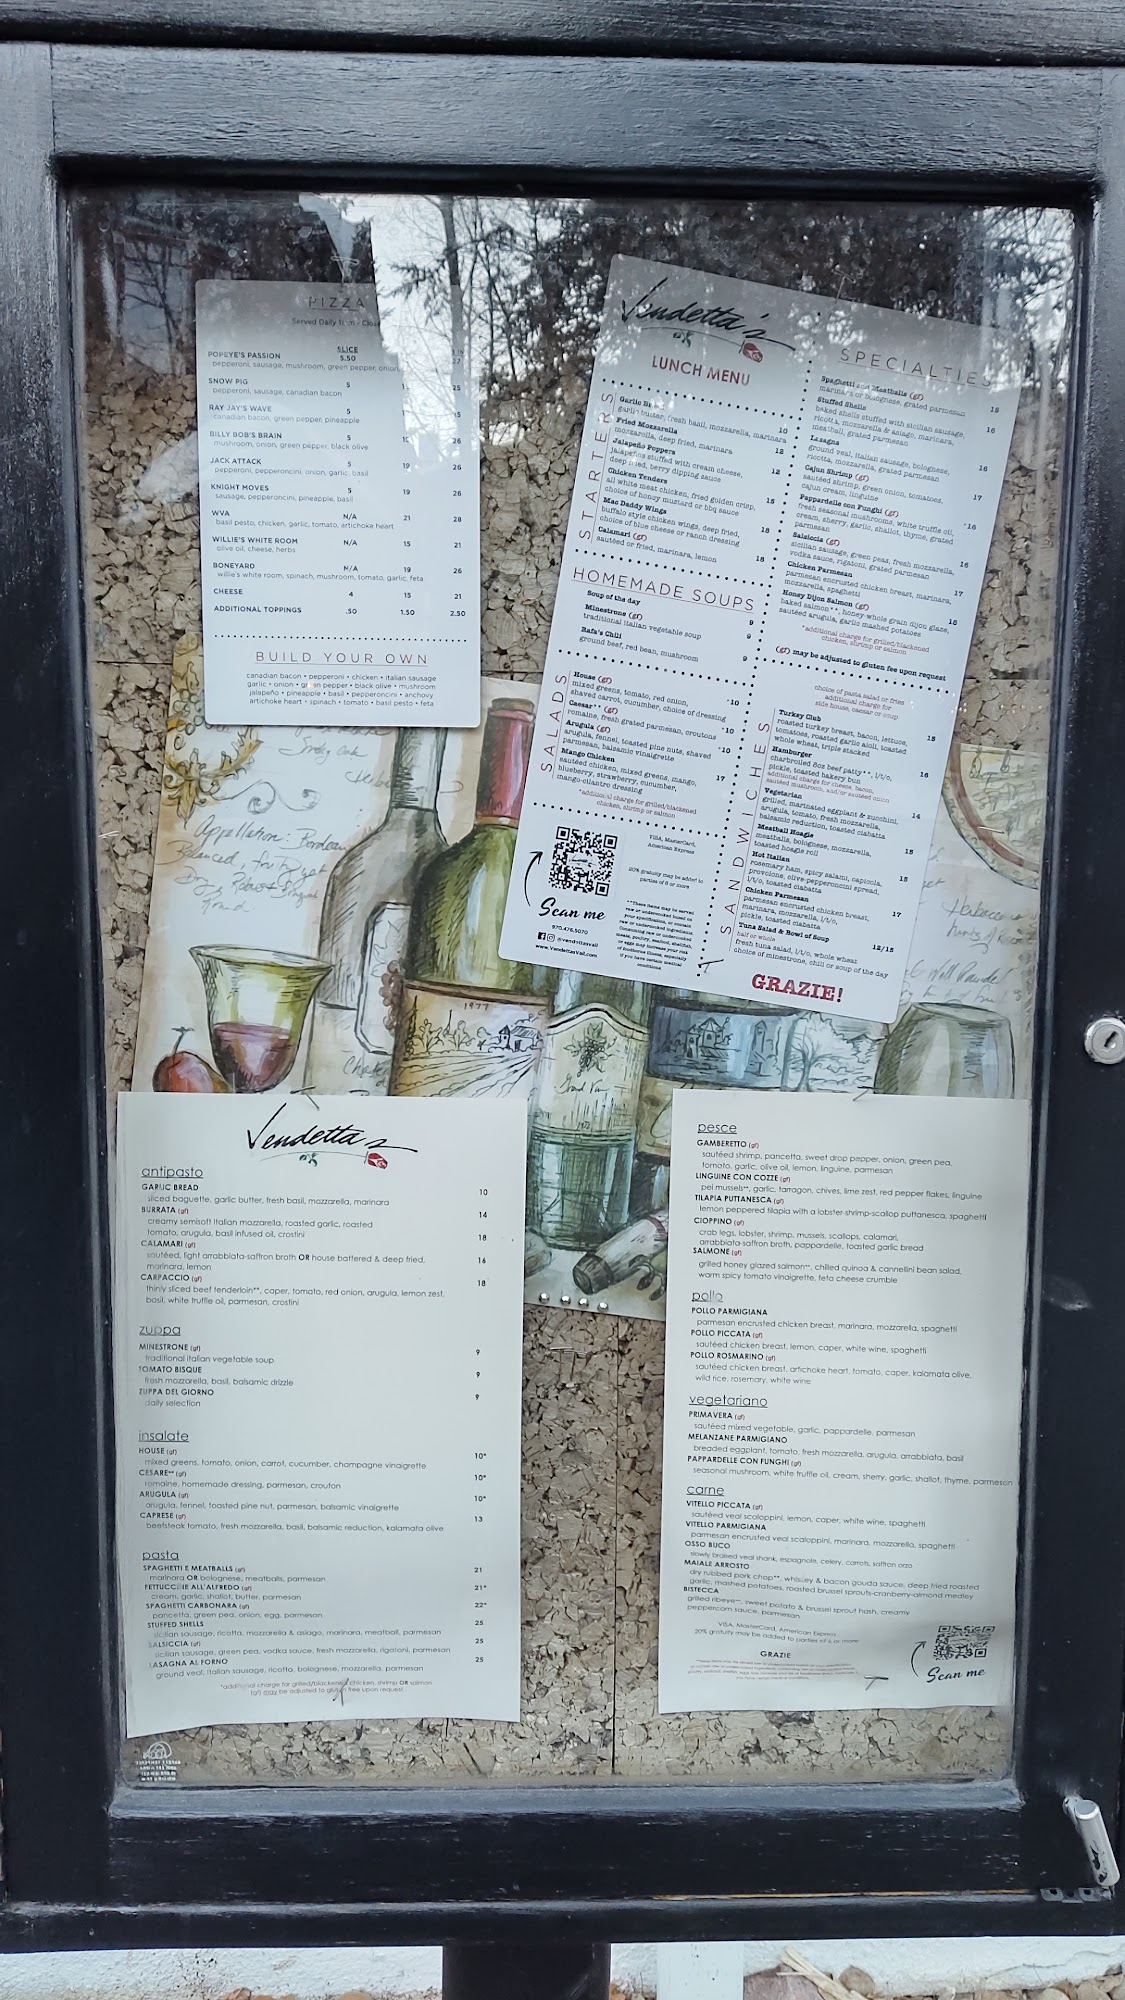 PIZZA
Served Daily 11am - Close
SLICE
POPEYE'S PASSION 5.50 27
pepperoni, sausage, mushroom, green pepper, onion
SNOW PIG 5 25
pepperoni, sausage, canadian bacon
RAY JAY'S WAVE 5
canadian bacon, green pepper, pineapple
BILLY BOB'S BRAIN 5 26
mushroom, onion, green pepper, black olive
JACK ATTACK 5 19 26
pepperoni, pepperoncini, onion, garlic, basil
KNIGHT MOVES 5 19 26
sausage, pepperoncini, pineapple, basil
WVA N/A 21 28
basil pesto, chicken, garlic, tomato, artichoke heart
WILLIE'S WHITE ROOM N/A 15 21
olive oil, cheese, herbs
BONEYARD N/A 19 26
willie's white room, spinach, mushroom, tomato, garlic, feta
CHEESE 4 15 21
ADDITIONAL TOPPINGS .50 1.50 2.50
BUILD YOUR OWN
canadian bacon • pepperoni • chicken • italian sausage
garlic • onion • green pepper • black olive • mushroom
jalapeño • pineapple • basil • pepperoncini • anchovy
artichoke heart • spinach • tomato • basil pesto • feta
Vendetta's
LUNCH MENU
STARTERS
Garlic Bread 10
garlic butter, fresh basil, mozzarella, marinara
Fried Mozzarella 12
mozzarella, deep fried, marinara
Jalapeño Poppers 12
jalapeños stuffed with cream cheese,
deep fried, berry dipping sauce
Chicken Tenders 15
all white meat chicken, fried golden crisp,
choice of honey mustard or bbq sauce
Mac Daddy Wings 18
buffalo style chicken wings, deep fried,
choice of blue cheese or ranch dressing
Calamari (gf) 18
sautéed or fried, marinara, lemon
HOMEMADE SOUPS
Soup of the day 9
Minestrone (gf) 9
traditional italian vegetable soup
Rafa's Chili 9
ground beef, red bean, mushroom
SALADS
House (gf) *10
mixed greens, tomato, red onion,
shaved carrot, cucumber, choice of dressing
Caesar** (gf) *10
romaine, fresh grated parmesan, croutons
Arugula (gf) *10
arugula, fennel, toasted pine nuts, shaved
parmesan, balsamic vinaigrette
Mango Chicken 17
sautéed chicken, mixed greens, mango,
blueberry, strawberry, cucumber,
mango-cilantro dressing
*additional charge for grilled/blackened
chicken, shrimp or salmon
Scan me
970.476.5070
@vendettasvail
www.VendettasVail.com
VISA, MasterCard,
American Express
20% gratuity may be added to
parties of 6 or more
**These items may be served
raw or undercooked based on
your specification, or contain
raw or undercooked ingredients.
Consuming raw or undercooked
meats, poultry, seafood, shellfish,
or eggs may increase your risk
of foodborne illness, especially
if you have certain medical
conditions.
SPECIALTIES
Spaghetti and Meatballs (gf) 15
marinara or bolognese, grated parmesan
Stuffed Shells 16
baked shells stuffed with sicilian sausage,
ricotta, mozzarella & asiago, marinara,
meatball, grated parmesan
Lasagna 16
ground veal, italian sausage, bolognese,
ricotta, mozzarella, grated parmesan
Cajun Shrimp (gf) 17
sautéed shrimp, green onion, tomatoes,
cajun cream, linguine
Pappardelle con Funghi (gf) *16
fresh seasonal mushrooms, white truffle oil,
cream, sherry, garlic, shallot, thyme, grated
parmesan
Salsiccia (gf) 16
sicilian sausage, green peas, fresh mozzarella,
vodka sauce, rigatoni, grated parmesan
Chicken Parmesan 17
parmesan encrusted chicken breast, marinara,
mozzarella, spaghetti
Honey Dijon Salmon (gf) 18
baked salmon**, honey-whole grain dijon glaze,
sautéed arugula, garlic mashed potatoes
*additional charge for grilled/blackened
chicken, shrimp or salmon
(gf) may be adjusted to gluten fee upon request
SANDWICHES
choice of pasta salad or fries
additional charge for
side house, caesar or soup
Turkey Club 15
roasted turkey breast, bacon, lettuce,
tomatoes, roasted garlic aioli, toasted
whole wheat, triple stacked
Hamburger 16
charbroiled 8oz beef patty**, l/t/o,
pickle, toasted bakery bun
additional charge for cheese, bacon,
sautéed mushroom, and/or sautéed onion
Vegetarian 14
grilled, marinated eggplant & zucchini,
arugula, tomato, fresh mozzarella,
balsamic reduction, toasted ciabatta
Meatball Hoagie 15
meatballs, bolognese, mozzarella,
toasted hoagie roll
Hot Italian 15
rosemary ham, spicy salami, capicola,
provolone, olive-pepperoncini spread,
l/t/o, toasted ciabatta
Chicken Parmesan 17
parmesan encrusted chicken breast,
marinara, mozzarella, l/t/o,
pickle, toasted ciabatta
Tuna Salad & Bowl of Soup 12/15
half or whole
fresh tuna salad, l/t/o, whole wheat
choice of minestrone, chili or soup of the day
GRAZIE!
Appellation: Bordeau
Balanced, fruity yet
1977
Grand Vin
Vendetta's
antipasto
GARLIC BREAD 10
sliced baguette, garlic butter, fresh basil, mozzarella, marinara
BURRATA (gf) 14
creamy semisoft italian mozzarella, roasted garlic, roasted
tomato, arugula, basil infused oil, crostini 18
CALAMARI (gf)
sautéed, light arrabbiata-saffron broth OR house battered & deep fried, 16
marinara, lemon
CARPACCIO (gf) 18
thinly sliced beef tenderloin**, caper, tomato, red onion, arugula, lemon zest,
basil, white truffle oil, parmesan, crostini
zuppa
MINESTRONE (gf) 9
traditional italian vegetable soup
TOMATO BISQUE 9
fresh mozzarella, basil, balsamic drizzle
ZUPPA DEL GIORNO 9
daily selection
insalate
HOUSE (gf) 10*
mixed greens, tomato, onion, carrot, cucumber, champagne vinaigrette
CESARE** (gf) 10*
romaine, homemade dressing, parmesan, crouton
ARUGULA (gf) 10*
arugula, fennel, toasted pine nut, parmesan, balsamic vinaigrette
CAPRESE (gf) 13
beefsteak tomato, fresh mozzarella, basil, balsamic reduction, kalamata olive
pasta
SPAGHETTI E MEATBALLS (gf) 21
marinara OR bolognese, meatballs, parmesan
FETTUCCINE ALL'ALFREDO (gf) 21*
cream, garlic, shallot, butter, parmesan
SPAGHETTI CARBONARA (gf) 22*
pancetta, green pea, onion, egg, parmesan
STUFFED SHELLS 25
sicilian sausage, ricotta, mozzarella & asiago, marinara, meatball, parmesan
SALSICCIA (gf) 25
sicilian sausage, green pea, vodka sauce, fresh mozzarella, rigatoni, parmesan
LASAGNA AL FORNO 25
ground veal, italian sausage, ricotta, bolognese, mozzarella, parmesan
*additional charge for grilled/blackened chicken, shrimp OR salmon
(gf) may be adjusted to gluten free upon request
pesce
GAMBERETTO (gf)
sautéed shrimp, pancetta, sweet drop pepper, onion, green pea,
tomato, garlic, olive oil, lemon, linguine, parmesan
LINGUINE CON COZZE (gf)
pei mussels**, garlic, tarragon, chives, lime zest, red pepper flakes, linguine
TILAPIA PUTTANESCA (gf)
lemon peppered tilapia with a lobster-shrimp-scallop puttanesca, spaghetti
CIOPPINO (gf)
crab legs, lobster, shrimp, mussels, scallops, calamari,
arrabbiata-saffron broth, pappardelle, toasted garlic bread
SALMONE (gf)
grilled honey glazed salmon**, chilled quinoa & cannellini bean salad,
warm spicy tomato vinaigrette, feta cheese crumble
pollo
POLLO PARMIGIANA
parmesan encrusted chicken breast, marinara, mozzarella, spaghetti
POLLO PICCATA (gf)
sautéed chicken breast, lemon, caper, white wine, spaghetti
POLLO ROSMARINO (gf)
sautéed chicken breast, artichoke heart, tomato, caper, kalamata olive,
wild rice, rosemary, white wine
vegetariano
PRIMAVERA (gf)
sautéed mixed vegetable, garlic, pappardelle, parmesan
MELANZANE PARMIGIANO
breaded eggplant, tomato, fresh mozzarella, arugula, arrabbiata, basil
PAPPARDELLE CON FUNGHI (gf)
seasonal mushroom, white truffle oil, cream, sherry, garlic, shallot, thyme, parmesan
carne
VITELLO PICCATA (gf)
sautéed veal scaloppini, lemon, caper, white wine, spaghetti
VITELLO PARMIGIANA
parmesan encrusted veal scaloppini, marinara, mozzarella, spaghetti
OSSO BUCO
slowly braised veal shank, espagnole, celery, carrots, saffron orzo
MAIALE ARROSTO
dry rubbed pork chop**, whiskey & bacon gouda sauce, deep fried roasted
garlic, mashed potatoes, roasted brussel sprouts-cranberry-almond medley
BISTECCA
grilled ribeye**, sweet potato & brussel sprout hash, creamy
peppercorn sauce, parmesan
VISA, MasterCard, American Express
20% gratuity may be added to parties of 6 or more
GRAZIE
Scan me